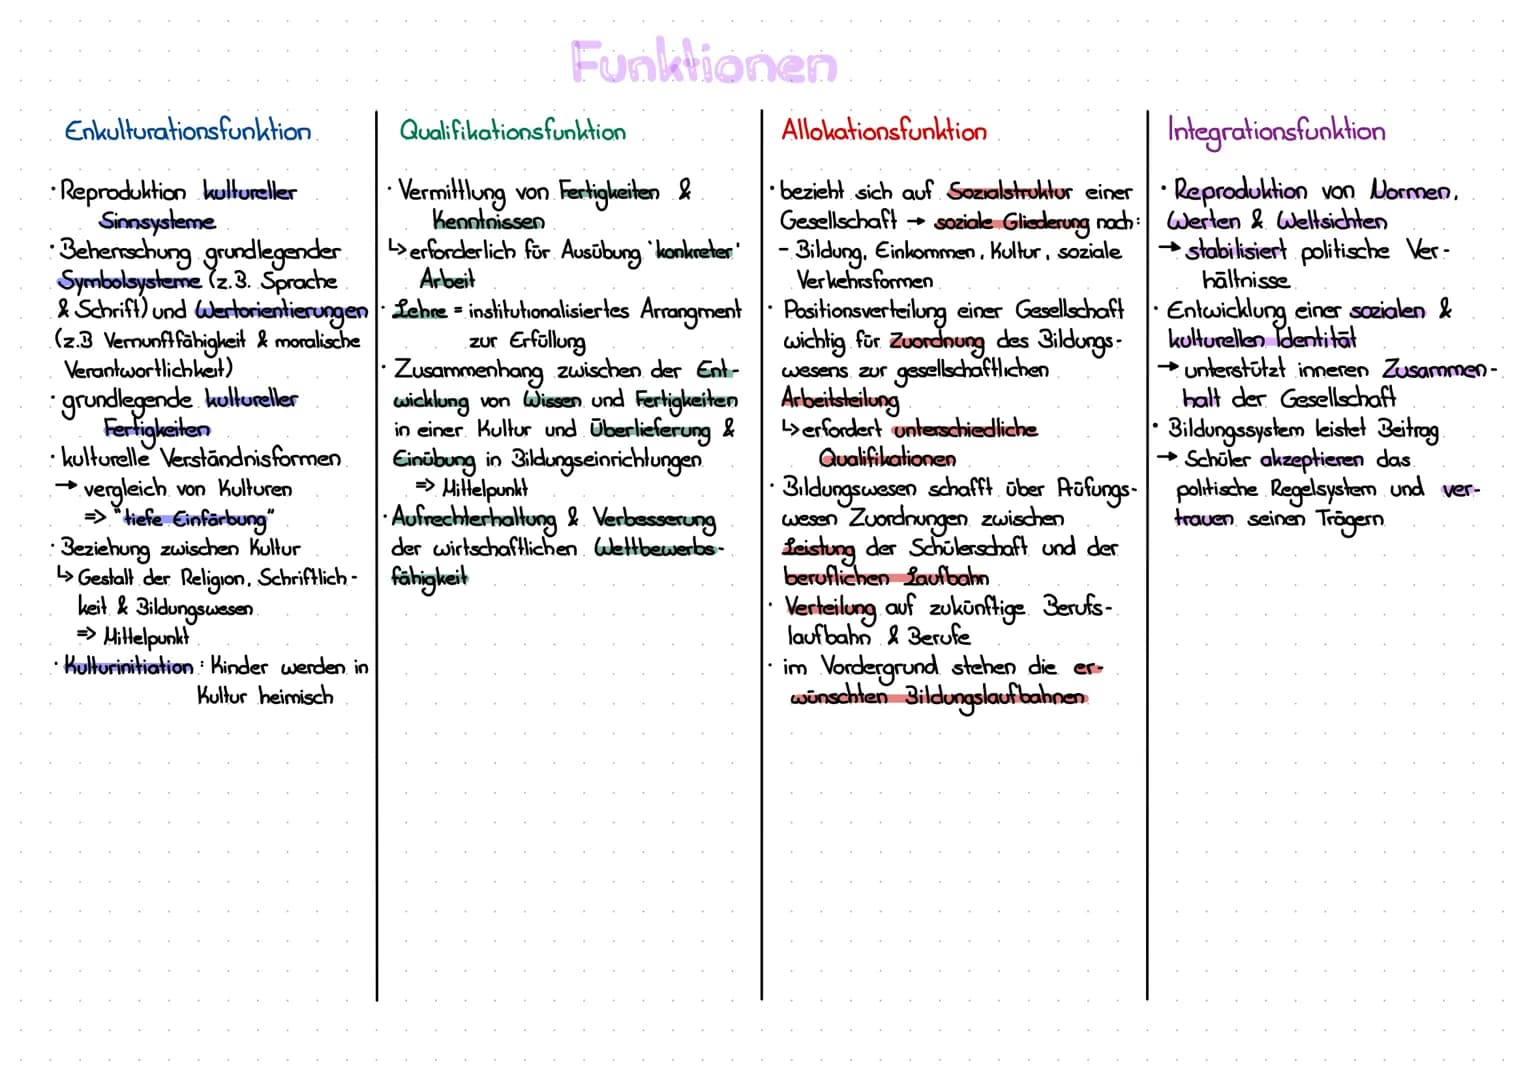 Funktionen
Enkulturationsfunktion
· Reproduktion kultureller
Sinnsysteme
· Beherrschung grundlegender
Symbolsysteme (z.B. Sprache
& Schrift) und Wertorientierungen
(z.B Vernunftfähigkeit & moralische
Verantwortlichkeit)
· grundlegende kultureller
Fertigkeiten
· kulturelle Verständnisformen
→ vergleich von Kulturen
=> "tiefe Einfärbung"
· Beziehung zwischen Kultur
↳ Gestalt der Religion, Schriftlich-
keit & Bildungswesen
=> Mittelpunkt
· Kulturinitiation : Kinder werden in
Kultur heimisch
Qualifikationsfunktion
· Vermittlung von Fertigkeiten &
Kenntnissen
↳ erforderlich für Ausübung 'konkreter'
Arbeit
· Lehre = institutionalisiertes Arrangment
zur Erfüllung
· Zusammenhang zwischen der Ent-
wicklung von Wissen und Fertigkeiten
in einer Kultur und Überlieferung &
Einübung in Bildungseinrichtungen
=> Mittelpunkt
· Aufrechterhaltung & Verbesserung
der wirtschaftlichen Wettbewerbs-
fähigkeit
Allokationsfunktion
· bezieht sich auf Sozialstruktur einer
Gesellschaft → soziale Gliederung nach:
- Bildung, Einkommen, Kultur, soziale
Verkehrsformen
· Positionsverteilung einer Gesellschaft
wichtig für Zuordnung des Bildungs-
wesens zur gesellschaftlichen
Arbeitsteilung
↳ erfordert unterschiedliche
Qualifikationen
· Bildungswesen schafft über Prüfungs-
wesen Zuordnungen zwischen
Leistung der Schülerschaft und der
beruflichen Laufbahn
· Verteilung auf zukünftige Berufs-
laufbahn & Berufe
· im Vordergrund stehen die er-
wünschten Bildungslaufbahnen
Integrationsfunktion
· Reproduktion von Normen,
Werten & Weltsichten
→ stabilisiert politische Ver-
hältnisse
· Entwicklung einer sozialen &
kulturellen Identität
→ unterstützt inneren Zusammen-
halt der Gesellschaft
· Bildungssystem leistet Beitrag
→ Schüler akzeptieren das
politische Regelsystem und ver-
trauen seinen Trägern